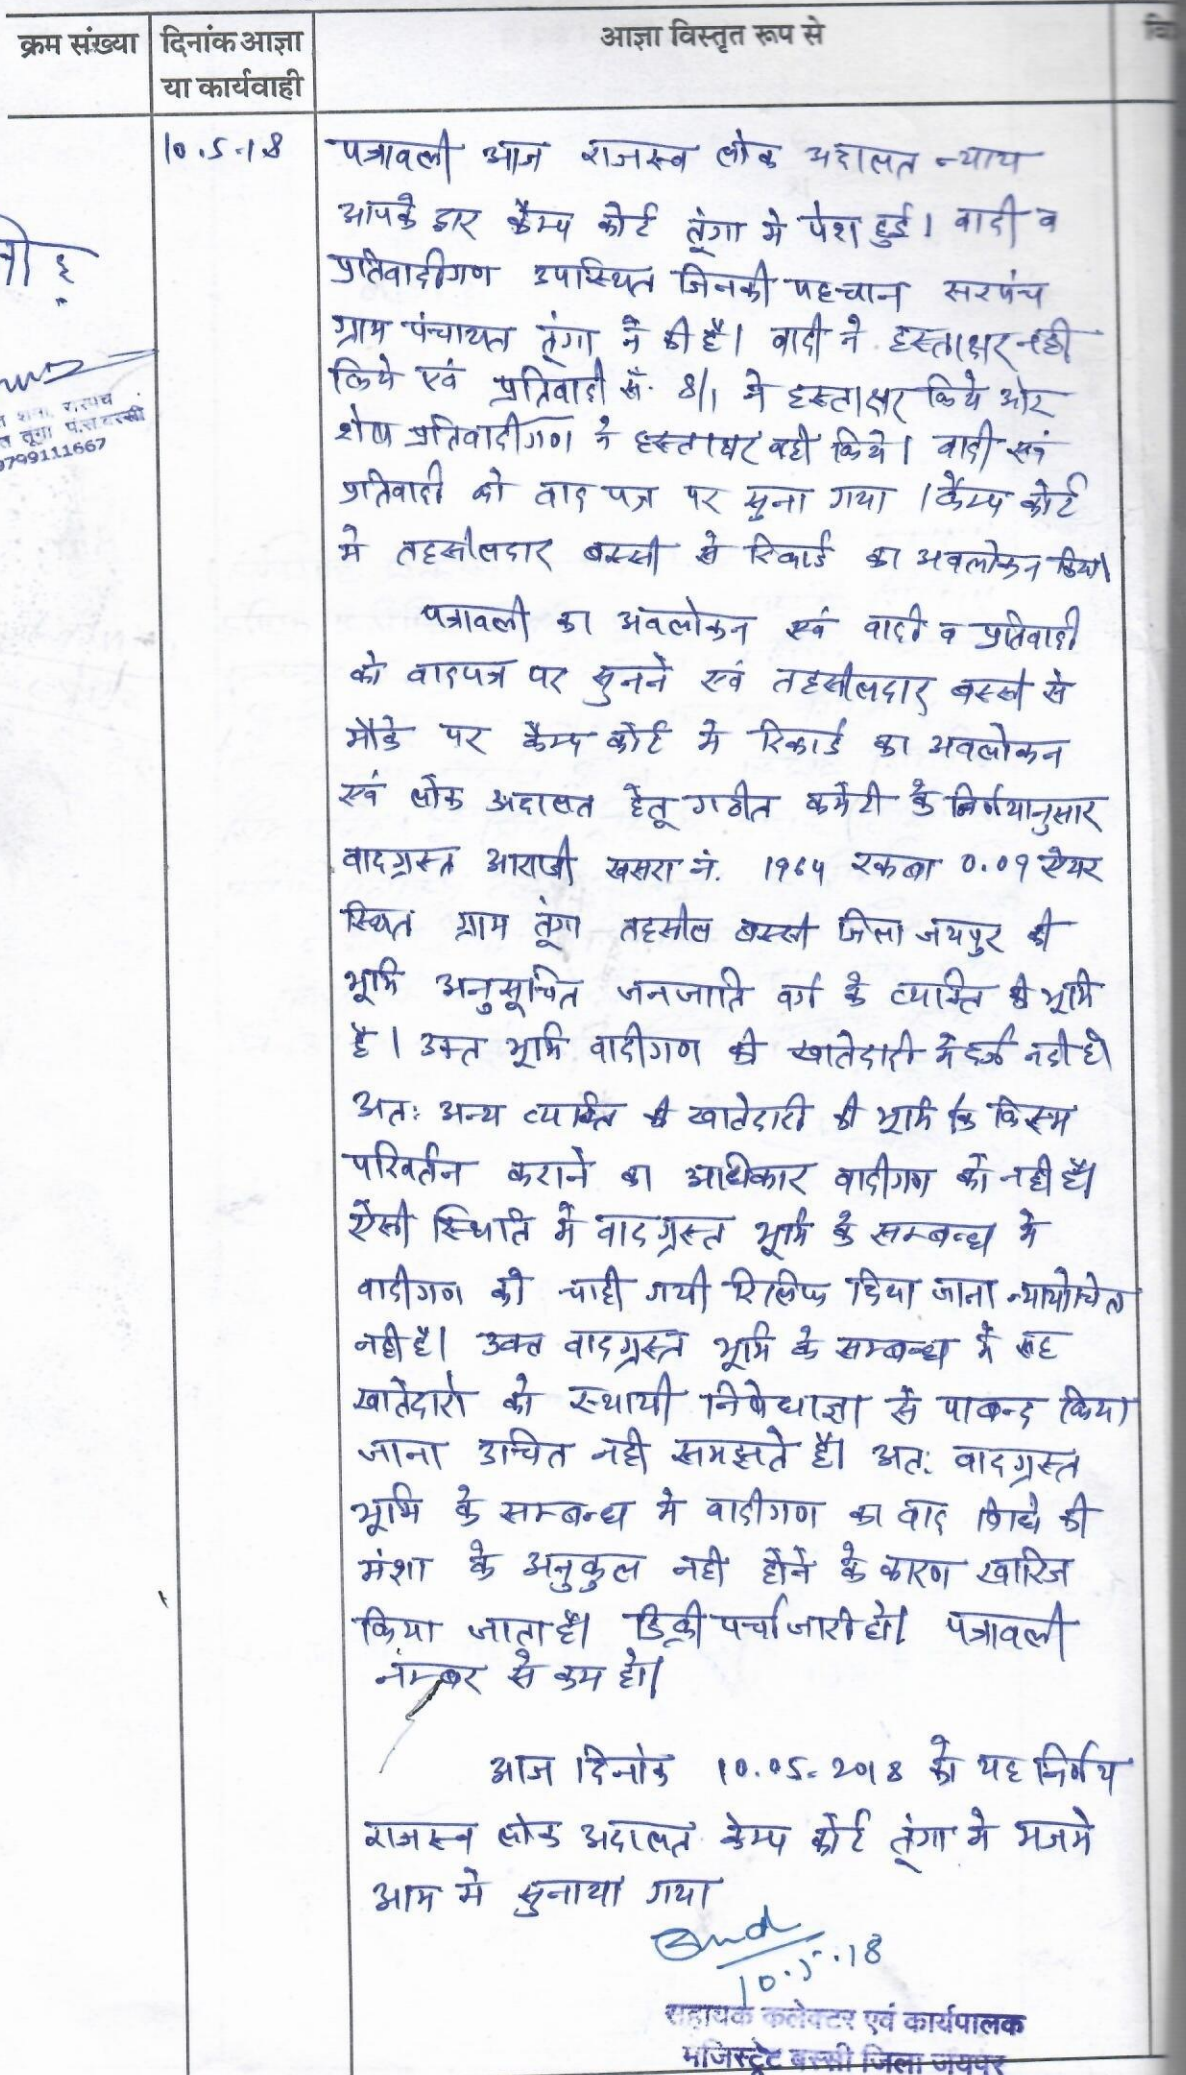 क्रम संख्या
दिनांक आज्ञा
या कार्यवाही
आज्ञा विस्तृत रूप से
10.5.18
पत्रावली आज राजस्व लोक अदालत न्याय
आपके द्वार कैम्प कोर्ट तूंगा मे पेश हुई। वादी व
प्रतिवादीगण उपस्थित जिनकी पहचान सरपंच
ग्राम पंचायत तूंगा ने की है। वादी ने हस्ताक्षर नही
किये एवं प्रतिवादी सं. 8/1 ने हस्ताक्षर किये और
शेष प्रतिवादीगण ने हस्ताक्षर नही किये। वादी एवं
प्रतिवादी को वाद पत्र पर सुना गया। कैम्प कोर्ट
मे तहसीलदार बस्सी से रिकार्ड का अवलोकन किया।
पत्रावली का अवलोकन एवं वादी व प्रतिवादी
को वादपत्र पर सुनने एवं तहसीलदार बस्सी से
मौके पर कैम्प कोर्ट मे रिकार्ड का अवलोकन
एवं लोक अदालत हेतू गठीत कमेटी के निर्णयानुसार
वादग्रस्त आराजी खसरा नं. 1964 रकबा 0.09 ऐयर
स्थित ग्राम तूंगा तहसील बस्सी जिला जयपुर की
भूमि अनुसूचित जनजाति वर्ग के व्यक्ति की भूमि
है। उक्त भूमि वादीगण की खातेदारी मे दर्ज नही है।
अतः अन्य व्यक्ति की खातेदारी की भूमि कि किस्म
परिवर्तन कराने का अधिकार वादीगण को नही है।
ऐसी स्थिति मे वादग्रस्त भूमि के सम्बन्ध मे
वादीगण को चाही गयी रिलिफ दिया जाना न्यायोचित
नही है। उक्त वादग्रस्त भूमि के सम्बन्ध में सह
खातेदारो को स्थायी निषेधाज्ञा से पाबन्द किया
जाना उचित नही समझते है। अतः वादग्रस्त
भूमि के सम्बन्ध मे वादीगण का वाद विधि की
मंशा के अनुकुल नही होने के कारण खारिज
किया जाता है। डिक्री पर्चा जारी हो। पत्रावली
नम्बर से कम हो।
आज दिनांक 10.05.2018 को यह निर्णय
राजस्व लोक अदालत केम्प कोर्ट तूंगा मे मजमे
आम मे सुनाया गया
10.5.18
सहायक कलेक्टर एवं कार्यपालक
मजिस्ट्रेट बस्सी जिला जयपुर
सरपंच
तूंगा पं.स. बस्सी
9799111667